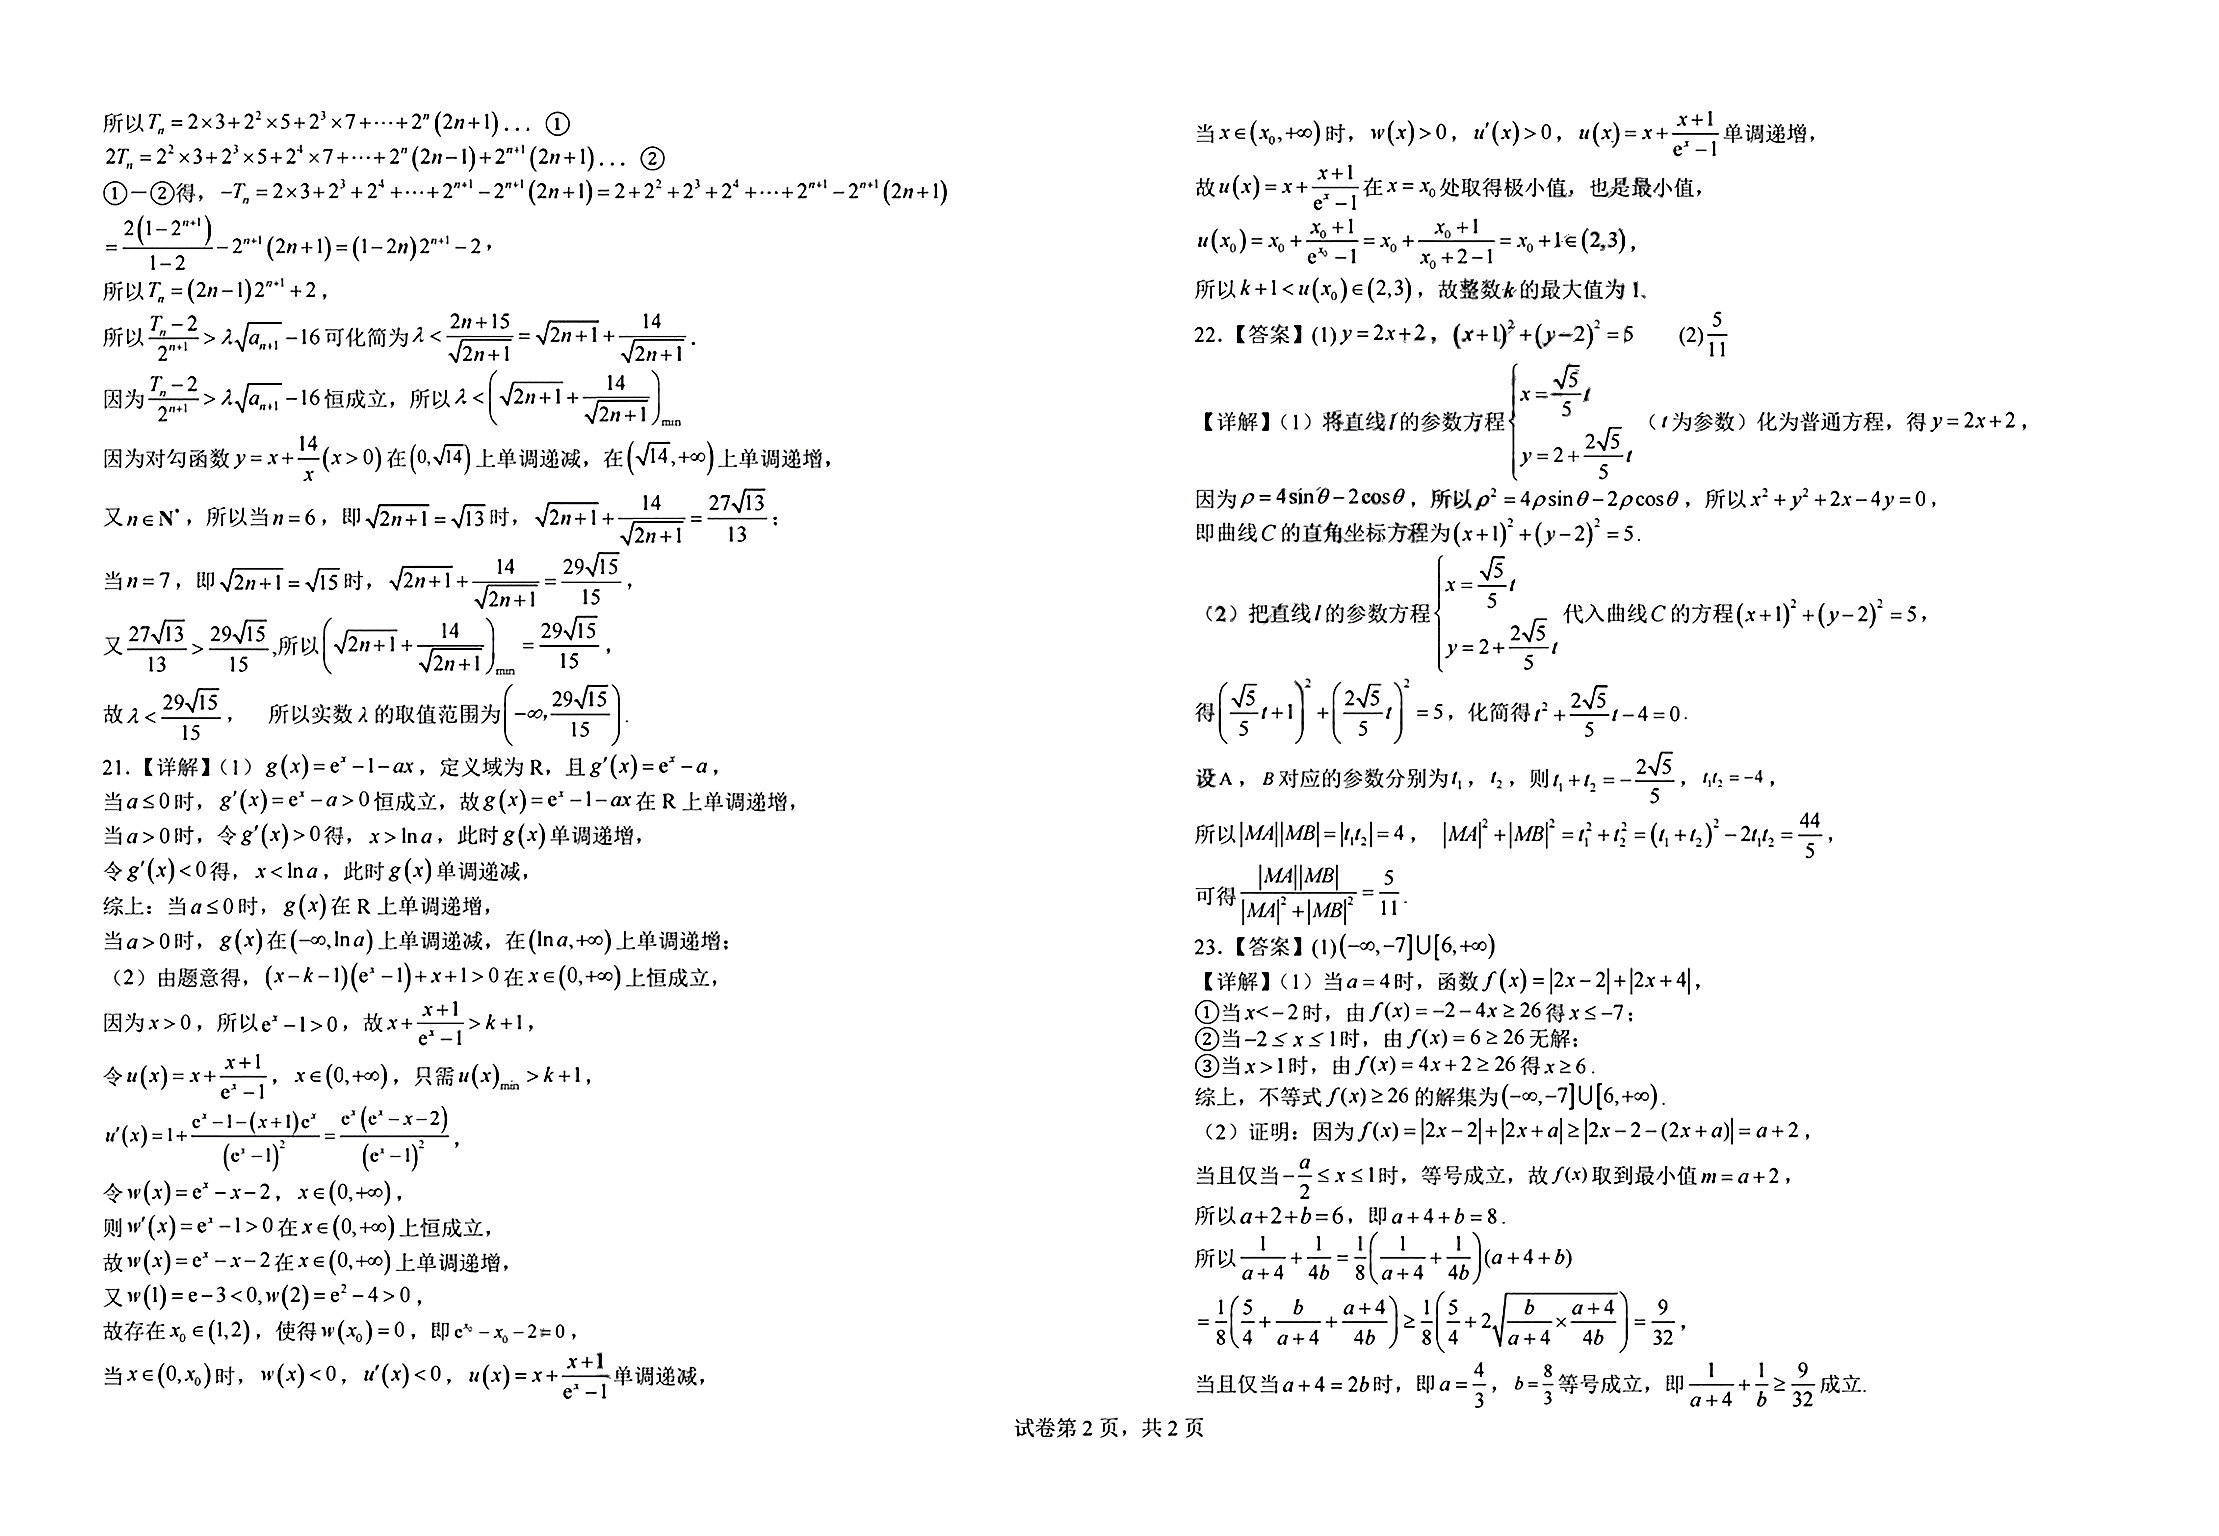 所以 $T_n=2\times3+2^2\times5+2^3\times7+\cdots+2^n(2n+1)$... ①
$2T_n=2^2\times3+2^3\times5+2^4\times7+\cdots+2^n(2n-1)+2^{n+1}(2n+1)$... ②
①－②得，$-T_n=2\times3+2^3+2^4+\cdots+2^{n+1}-2^{n+1}(2n+1)=2+2^2+2^3+2^4+\cdots+2^{n+1}-2^{n+1}(2n+1)$
$=\frac{2(1-2^{n+1})}{1-2}-2^{n+1}(2n+1)=(1-2n)2^{n+1}-2$，
所以 $T_n=(2n-1)2^{n+1}+2$，
所以 $\frac{T_n-2}{2^{n+1}}>\lambda\sqrt{a_{n+1}}-16$ 可化简为 $\lambda<\frac{2n+15}{\sqrt{2n+1}}=\sqrt{2n+1}+\frac{14}{\sqrt{2n+1}}$.
因为 $\frac{T_n-2}{2^{n+1}}>\lambda\sqrt{a_{n+1}}-16$ 恒成立，所以 $\lambda<\left(\sqrt{2n+1}+\frac{14}{\sqrt{2n+1}}\right)_{\min}$
因为对勾函数 $y=x+\frac{14}{x}(x>0)$ 在 $(0,\sqrt{14})$ 上单调递减，在 $(\sqrt{14},+\infty)$ 上单调递增，
又 $n\in\mathbf{N}^*$，所以当 $n=6$，即 $\sqrt{2n+1}=\sqrt{13}$ 时，$\sqrt{2n+1}+\frac{14}{\sqrt{2n+1}}=\frac{27\sqrt{13}}{13}$；
当 $n=7$，即 $\sqrt{2n+1}=\sqrt{15}$ 时，$\sqrt{2n+1}+\frac{14}{\sqrt{2n+1}}=\frac{29\sqrt{15}}{15}$，
又 $\frac{27\sqrt{13}}{13}>\frac{29\sqrt{15}}{15}$,所以 $\left(\sqrt{2n+1}+\frac{14}{\sqrt{2n+1}}\right)_{\min}=\frac{29\sqrt{15}}{15}$，
故 $\lambda<\frac{29\sqrt{15}}{15}$，  所以实数 $\lambda$ 的取值范围为 $\left(-\infty,\frac{29\sqrt{15}}{15}\right)$.
21.【详解】（1）$g(x)=e^x-1-ax$，定义域为 R，且 $g'(x)=e^x-a$，
当 $a\le0$ 时，$g'(x)=e^x-a>0$ 恒成立，故 $g(x)=e^x-1-ax$ 在 R 上单调递增，
当 $a>0$ 时，令 $g'(x)>0$ 得，$x>\ln a$，此时 $g(x)$ 单调递增，
令 $g'(x)<0$ 得，$x<\ln a$，此时 $g(x)$ 单调递减，
综上：当 $a\le0$ 时，$g(x)$ 在 R 上单调递增，
当 $a>0$ 时，$g(x)$ 在 $(-\infty,\ln a)$ 上单调递减，在 $(\ln a,+\infty)$ 上单调递增；
（2）由题意得，$(x-k-1)(e^x-1)+x+1>0$ 在 $x\in(0,+\infty)$ 上恒成立，
因为 $x>0$，所以 $e^x-1>0$，故 $x+\frac{x+1}{e^x-1}>k+1$，
令 $u(x)=x+\frac{x+1}{e^x-1}$，$x\in(0,+\infty)$，只需 $u(x)_{\min}>k+1$，
$u'(x)=1+\frac{e^x-1-(x+1)e^x}{(e^x-1)^2}=\frac{e^x(e^x-x-2)}{(e^x-1)^2}$，
令 $w(x)=e^x-x-2$，$x\in(0,+\infty)$，
则 $w'(x)=e^x-1>0$ 在 $x\in(0,+\infty)$ 上恒成立，
故 $w(x)=e^x-x-2$ 在 $x\in(0,+\infty)$ 上单调递增，
又 $w(1)=e-3<0,w(2)=e^2-4>0$，
故存在 $x_0\in(1,2)$，使得 $w(x_0)=0$，即 $e^{x_0}-x_0-2=0$，
当 $x\in(0,x_0)$ 时，$w(x)<0$，$u'(x)<0$，$u(x)=x+\frac{x+1}{e^x-1}$ 单调递减，
当 $x\in(x_0,+\infty)$ 时，$w(x)>0$，$u'(x)>0$，$u(x)=x+\frac{x+1}{e^x-1}$ 单调递增，
故 $u(x)=x+\frac{x+1}{e^x-1}$ 在 $x=x_0$ 处取得极小值，也是最小值，
$u(x_0)=x_0+\frac{x_0+1}{e^{x_0}-1}=x_0+\frac{x_0+1}{x_0+2-1}=x_0+1\in(2,3)$，
所以 $k+1<u(x_0)\in(2,3)$，故整数 $k$ 的最大值为 1.
22.【答案】(1) $y=2x+2$，$(x+1)^2+(y-2)^2=5$  (2) $\frac{5}{11}$
【详解】（1）将直线 $l$ 的参数方程 $\begin{cases}x=\frac{\sqrt5}{5}t\\y=2+\frac{2\sqrt5}{5}t\end{cases}$（$t$ 为参数）化为普通方程，得 $y=2x+2$，
因为 $\rho=4\sin\theta-2\cos\theta$，所以 $\rho^2=4\rho\sin\theta-2\rho\cos\theta$，所以 $x^2+y^2+2x-4y=0$，
即曲线 $C$ 的直角坐标方程为 $(x+1)^2+(y-2)^2=5$.
（2）把直线 $l$ 的参数方程 $\begin{cases}x=\frac{\sqrt5}{5}t\\y=2+\frac{2\sqrt5}{5}t\end{cases}$ 代入曲线 $C$ 的方程 $(x+1)^2+(y-2)^2=5$，
得 $\left(\frac{\sqrt5}{5}t+1\right)^2+\left(\frac{2\sqrt5}{5}t\right)^2=5$，化简得 $t^2+\frac{2\sqrt5}{5}t-4=0$.
设 A，$B$ 对应的参数分别为 $t_1$，$t_2$，则 $t_1+t_2=-\frac{2\sqrt5}{5}$，$t_1t_2=-4$，
所以 $|MA||MB|=|t_1t_2|=4$， $|MA|^2+|MB|^2=t_1^2+t_2^2=(t_1+t_2)^2-2t_1t_2=\frac{44}{5}$，
可得 $\frac{|MA||MB|}{|MA|^2+|MB|^2}=\frac{5}{11}$.
23.【答案】(1) $(-\infty,-7]\cup[6,+\infty)$
【详解】（1）当 $a=4$ 时，函数 $f(x)=|2x-2|+|2x+4|$，
①当 $x<-2$ 时，由 $f(x)=-2-4x\ge26$ 得 $x\le-7$；
②当 $-2\le x\le1$ 时，由 $f(x)=6\ge26$ 无解；
③当 $x>1$ 时，由 $f(x)=4x+2\ge26$ 得 $x\ge6$.
综上，不等式 $f(x)\ge26$ 的解集为 $(-\infty,-7]\cup[6,+\infty)$.
（2）证明：因为 $f(x)=|2x-2|+|2x+a|\ge|2x-2-(2x+a)|=a+2$，
当且仅当 $-\frac{a}{2}\le x\le1$ 时，等号成立，故 $f(x)$ 取到最小值 $m=a+2$，
所以 $a+2+b=6$，即 $a+4+b=8$.
所以 $\frac{1}{a+4}+\frac{1}{4b}=\frac18\left(\frac{1}{a+4}+\frac{1}{4b}\right)(a+4+b)$
$=\frac18\left(\frac54+\frac{b}{a+4}+\frac{a+4}{4b}\right)\ge\frac18\left(\frac54+2\sqrt{\frac{b}{a+4}\times\frac{a+4}{4b}}\right)=\frac{9}{32}$，
当且仅当 $a+4=2b$ 时，即 $a=\frac43$，$b=\frac83$ 等号成立，即 $\frac{1}{a+4}+\frac{1}{b}\ge\frac{9}{32}$ 成立.
试卷第 2 页，共 2 页